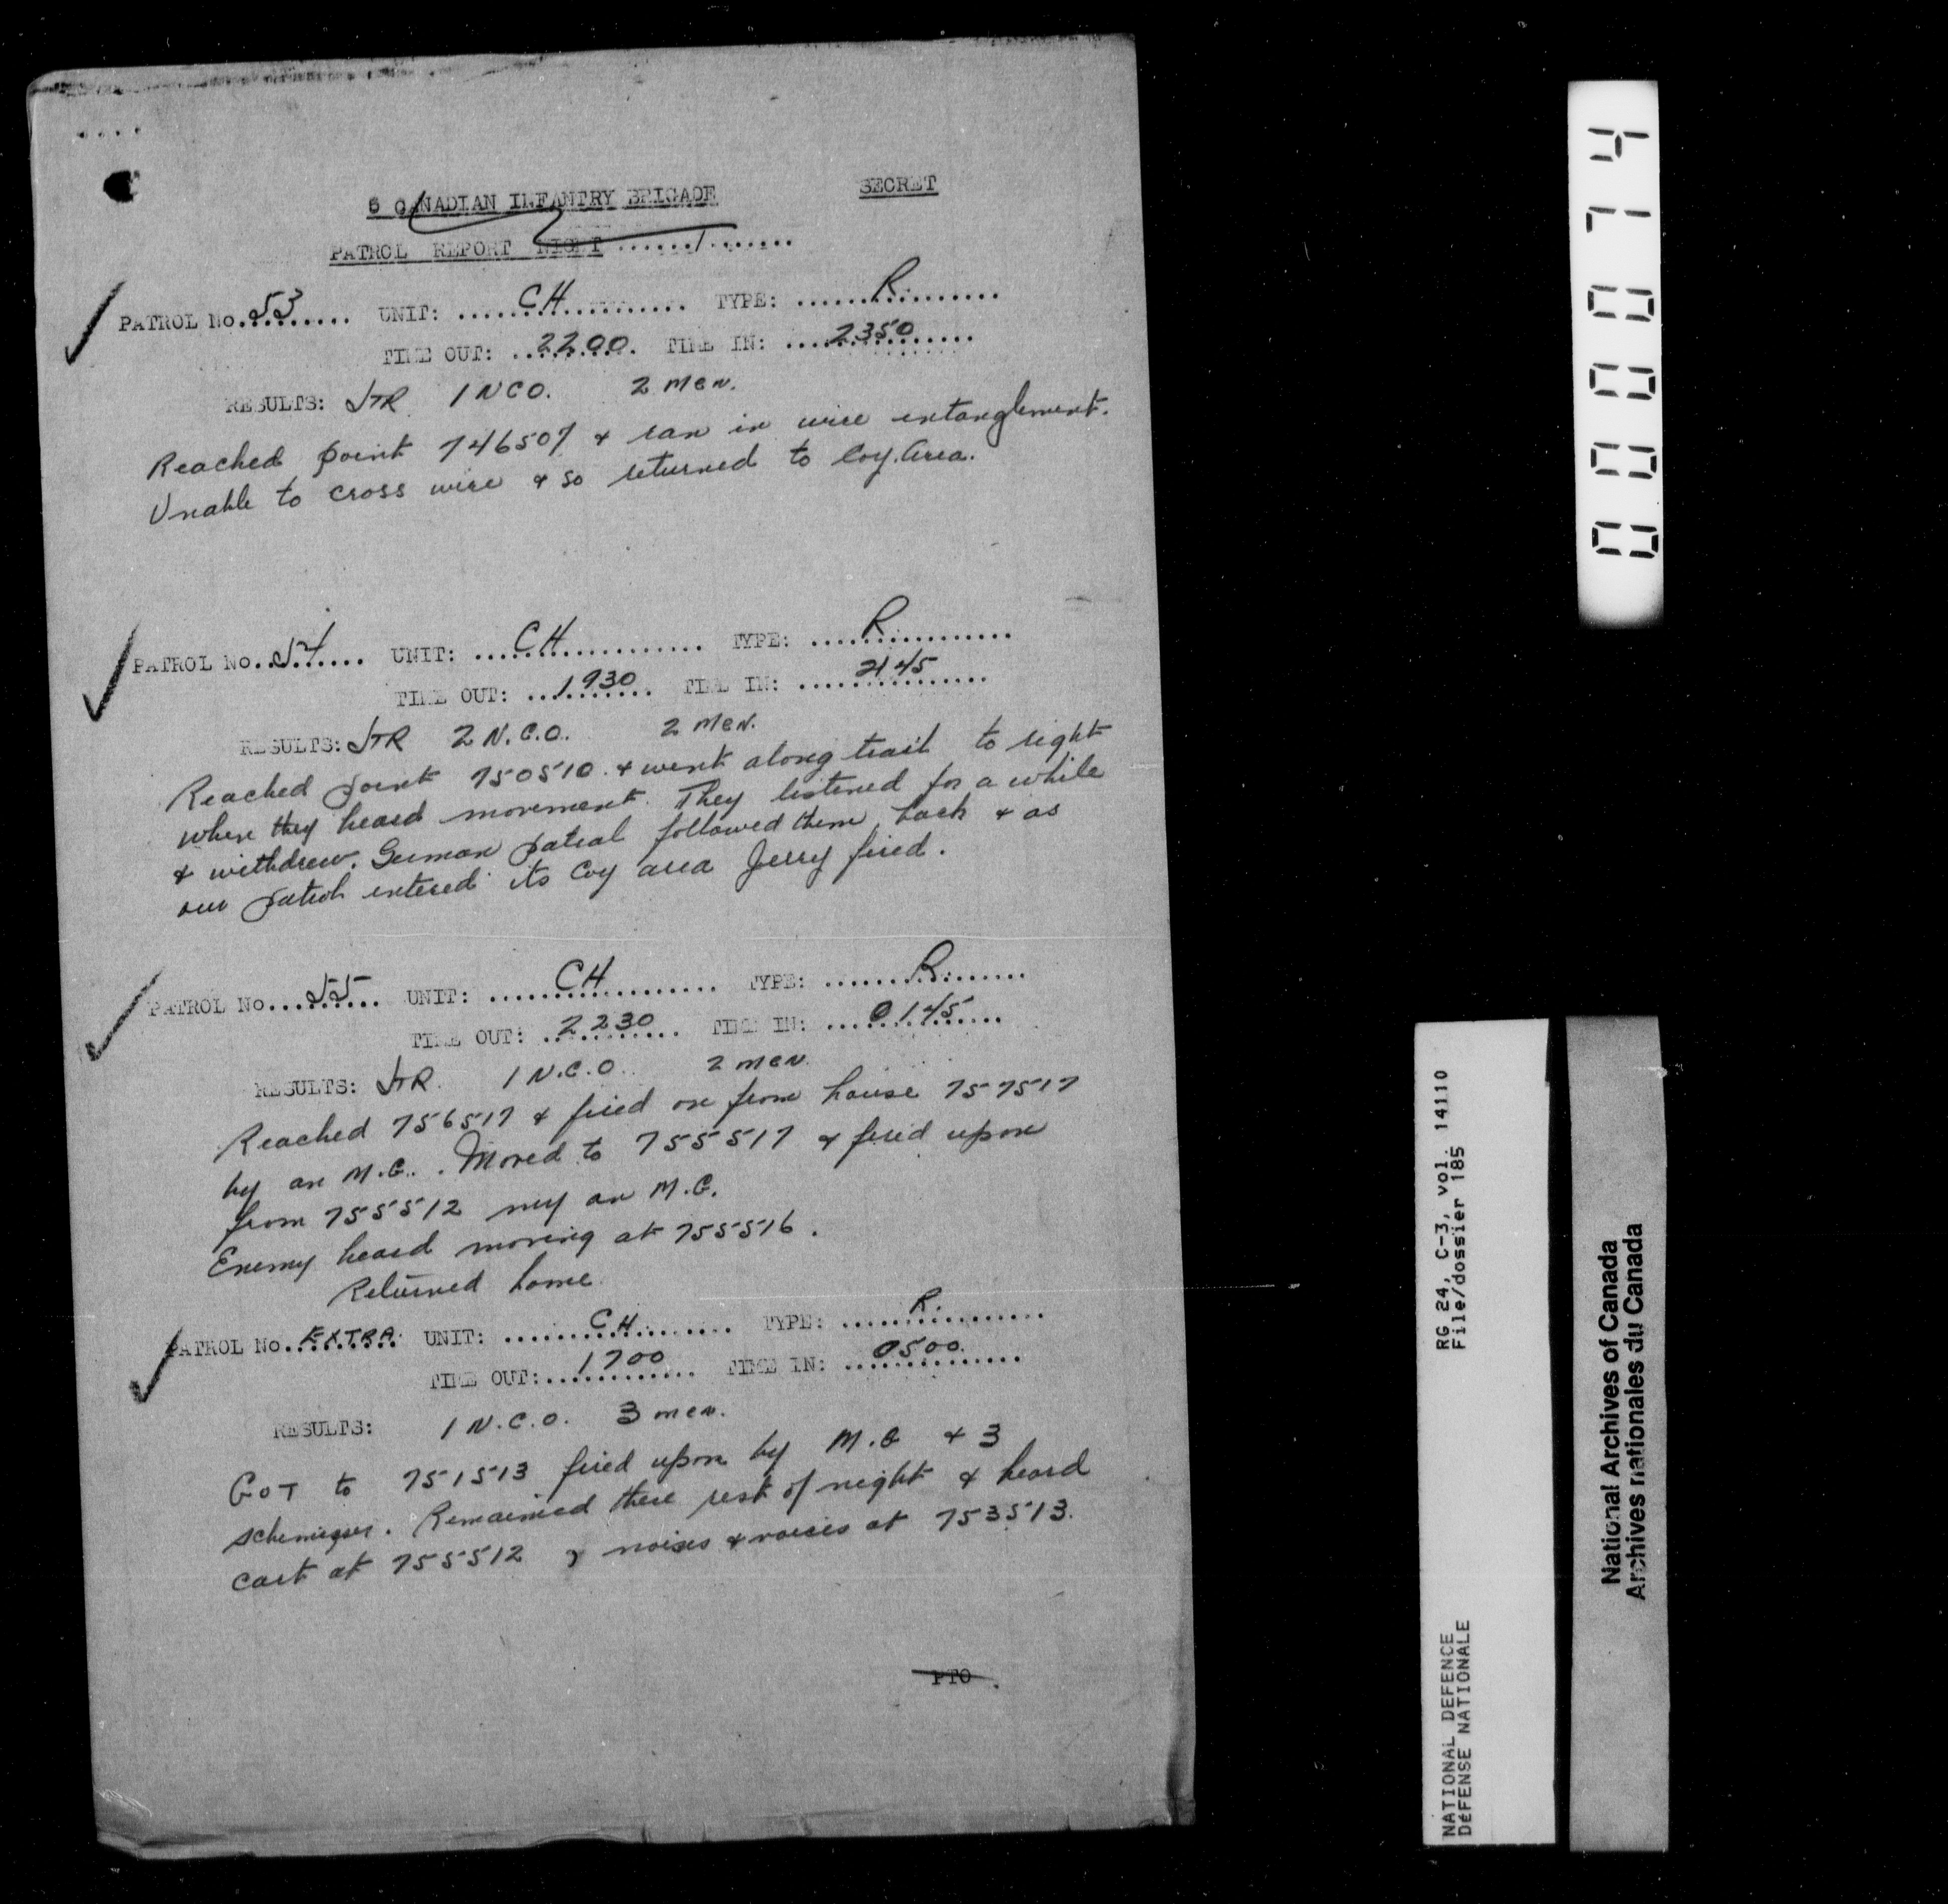 6 CANADIAN INFANTRY BRIGADE
SECRET
PATROL REPORT NIGHT ....../.......
PATROL No. 53 UNIT: CH TYPE: R
TIME OUT: 2200 TIME IN: 2350
RESULTS: STR 1 NCO. 2 men.
Reached point 746507 & ran in wire entanglement.
Unable to cross wire & so returned to Coy. Area.
PATROL No. 54 UNIT: CH TYPE: R
TIME OUT: 1930 TIME IN: 2145
RESULTS: STR 2 N.C.O. 2 men.
Reached point 750510 & went along trail to right
where they heard movement. They listened for a while
& withdrew. German patrol followed them back & as
our patrol entered its Coy area Jerry fired.
PATROL No. 55 UNIT: CH TYPE: R
TIME OUT: 2230 TIME IN: 0145
RESULTS: STR. 1 N.C.O. 2 men.
Reached 756517 & fired on from house 757517
by an M.G. . Moved to 755517 & fired upon
from 755512 my an M.G.
Enemy heard moving at 755516 .
Returned home
PATROL No. EXTRA UNIT: CH TYPE: R.
TIME OUT: 1700 TIME IN: 0500.
RESULTS: 1 N.C.O. 3 men.
GOT to 751513 fired upon by M.G & 3
. Remained there rest of night & heard
cart at 755512 & noises & voices at 753513.
PTO.
000074
RG 24, C-3, vol. 14110
File/dossier 185
NATIONAL DEFENCE
DÉFENSE NATIONALE
National Archives of Canada
Archives nationales du Canada